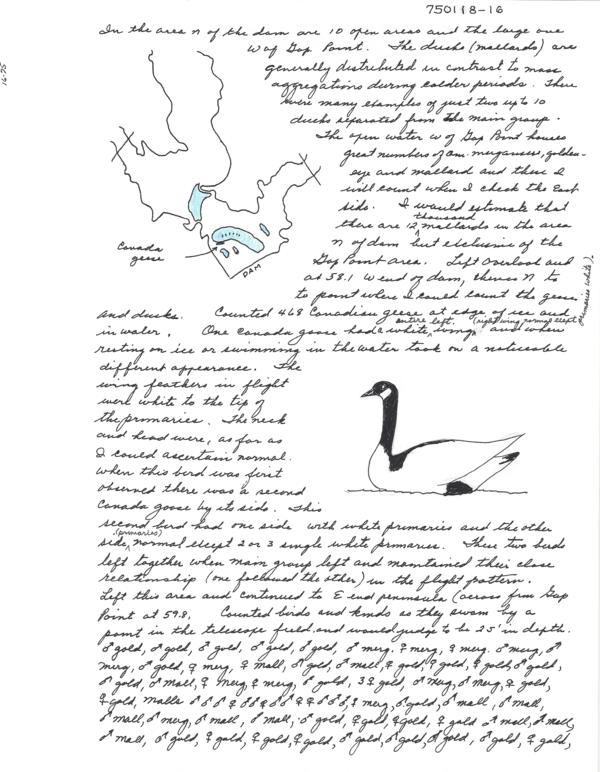 750118-16
16-75
In the area n of the dam are 10 open areas and the large one
W of Gap Point. The ducks (mallards) are
generally distributed in contrast to mass
aggregations during colder periods. There
were many examples of just two up to 10
ducks separated from the main group.
The open water W of Gap Point houses
great numbers of am. merganser, golden-
eye and mallard and these I
will count when I check the East
side. I would estimate that
there are 12 thousand mallards in the area
n of dam but exclusive of the
Gap Point area. Left Overlook and
at 58.1 W end of dam, thence N to
to point where I could count the geese
Canada
geese
DAM
and ducks. Counted 468 Canadian geese at edge of ice and
in water. One Canada goose had a white entire left wing, (right wing normal except primaries white). and when
resting on ice or swimming in the water took on a noticeable
different appearance. The
wing feathers in flight
were white to the tip of
the primaries. The neck
and head were, as far as
I could ascertain normal.
When this bird was first
observed there was a second
Canada goose by its side. This
second bird had one side with white primaries and the other
side, (primaries) normal except 2 or 3 single white primaries. These two birds
left together when main group left and maintained their close
relationship (one followed the other) in the flight pattern.
Left this area and continued to E end peninsula (across from Gap
Point at 59.8. Counted birds and kinds as they swam by a
point in the telescope field and would judge to be 25' in depth.
♂ gold, ♂ gold, ♂ gold, ♂ gold, ♂ gold, ♂ merg. ♀ merg, ♀ merg. ♂ merg, ♂
merg, ♂ gold, ♀ merg, ♀ mall, ♂ gold, ♂ mall, ♀ gold, ♀ gold, ♀ gold, ♂ gold,
♂ gold, ♂ mall, ♀ merg, ♀ merg, ♂ gold, 3 ♀ gold, ♂ merg, ♂ merg, ♀ gold,
♀ gold, malls ♀ merg, ♂ gold, ♂ mall, ♂ mall,
♂ mall, ♂ merg, ♂ mall, ♂ mall, ♂ gold, ♀ gold, ♀ gold, ♀ gold ♂ mall, ♂ mall,
♂ mall, ♂ gold, ♀ gold, ♀ gold, ♀ gold, ♂ gold, ♂ gold, ♂ gold, ♂ gold, ♀ gold,